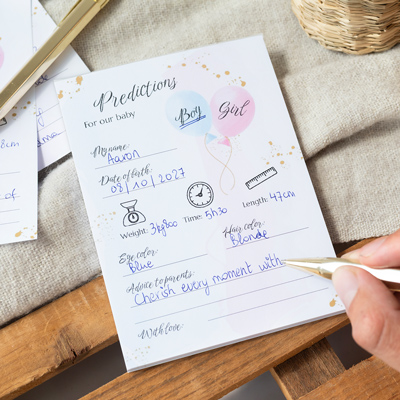 Predictions
For our baby
Boy
Girl
My name:
Aaron
Date of birth:
08/10/2027
Weight: 3kg800
Time: 5h30
Length: 47cm
Eye color:
Blue
Hair color:
Blonde
Advice to parents:
Cherish every moment with
With love